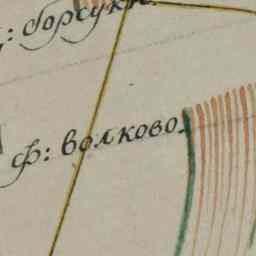 : борсуки.
ф: волково.